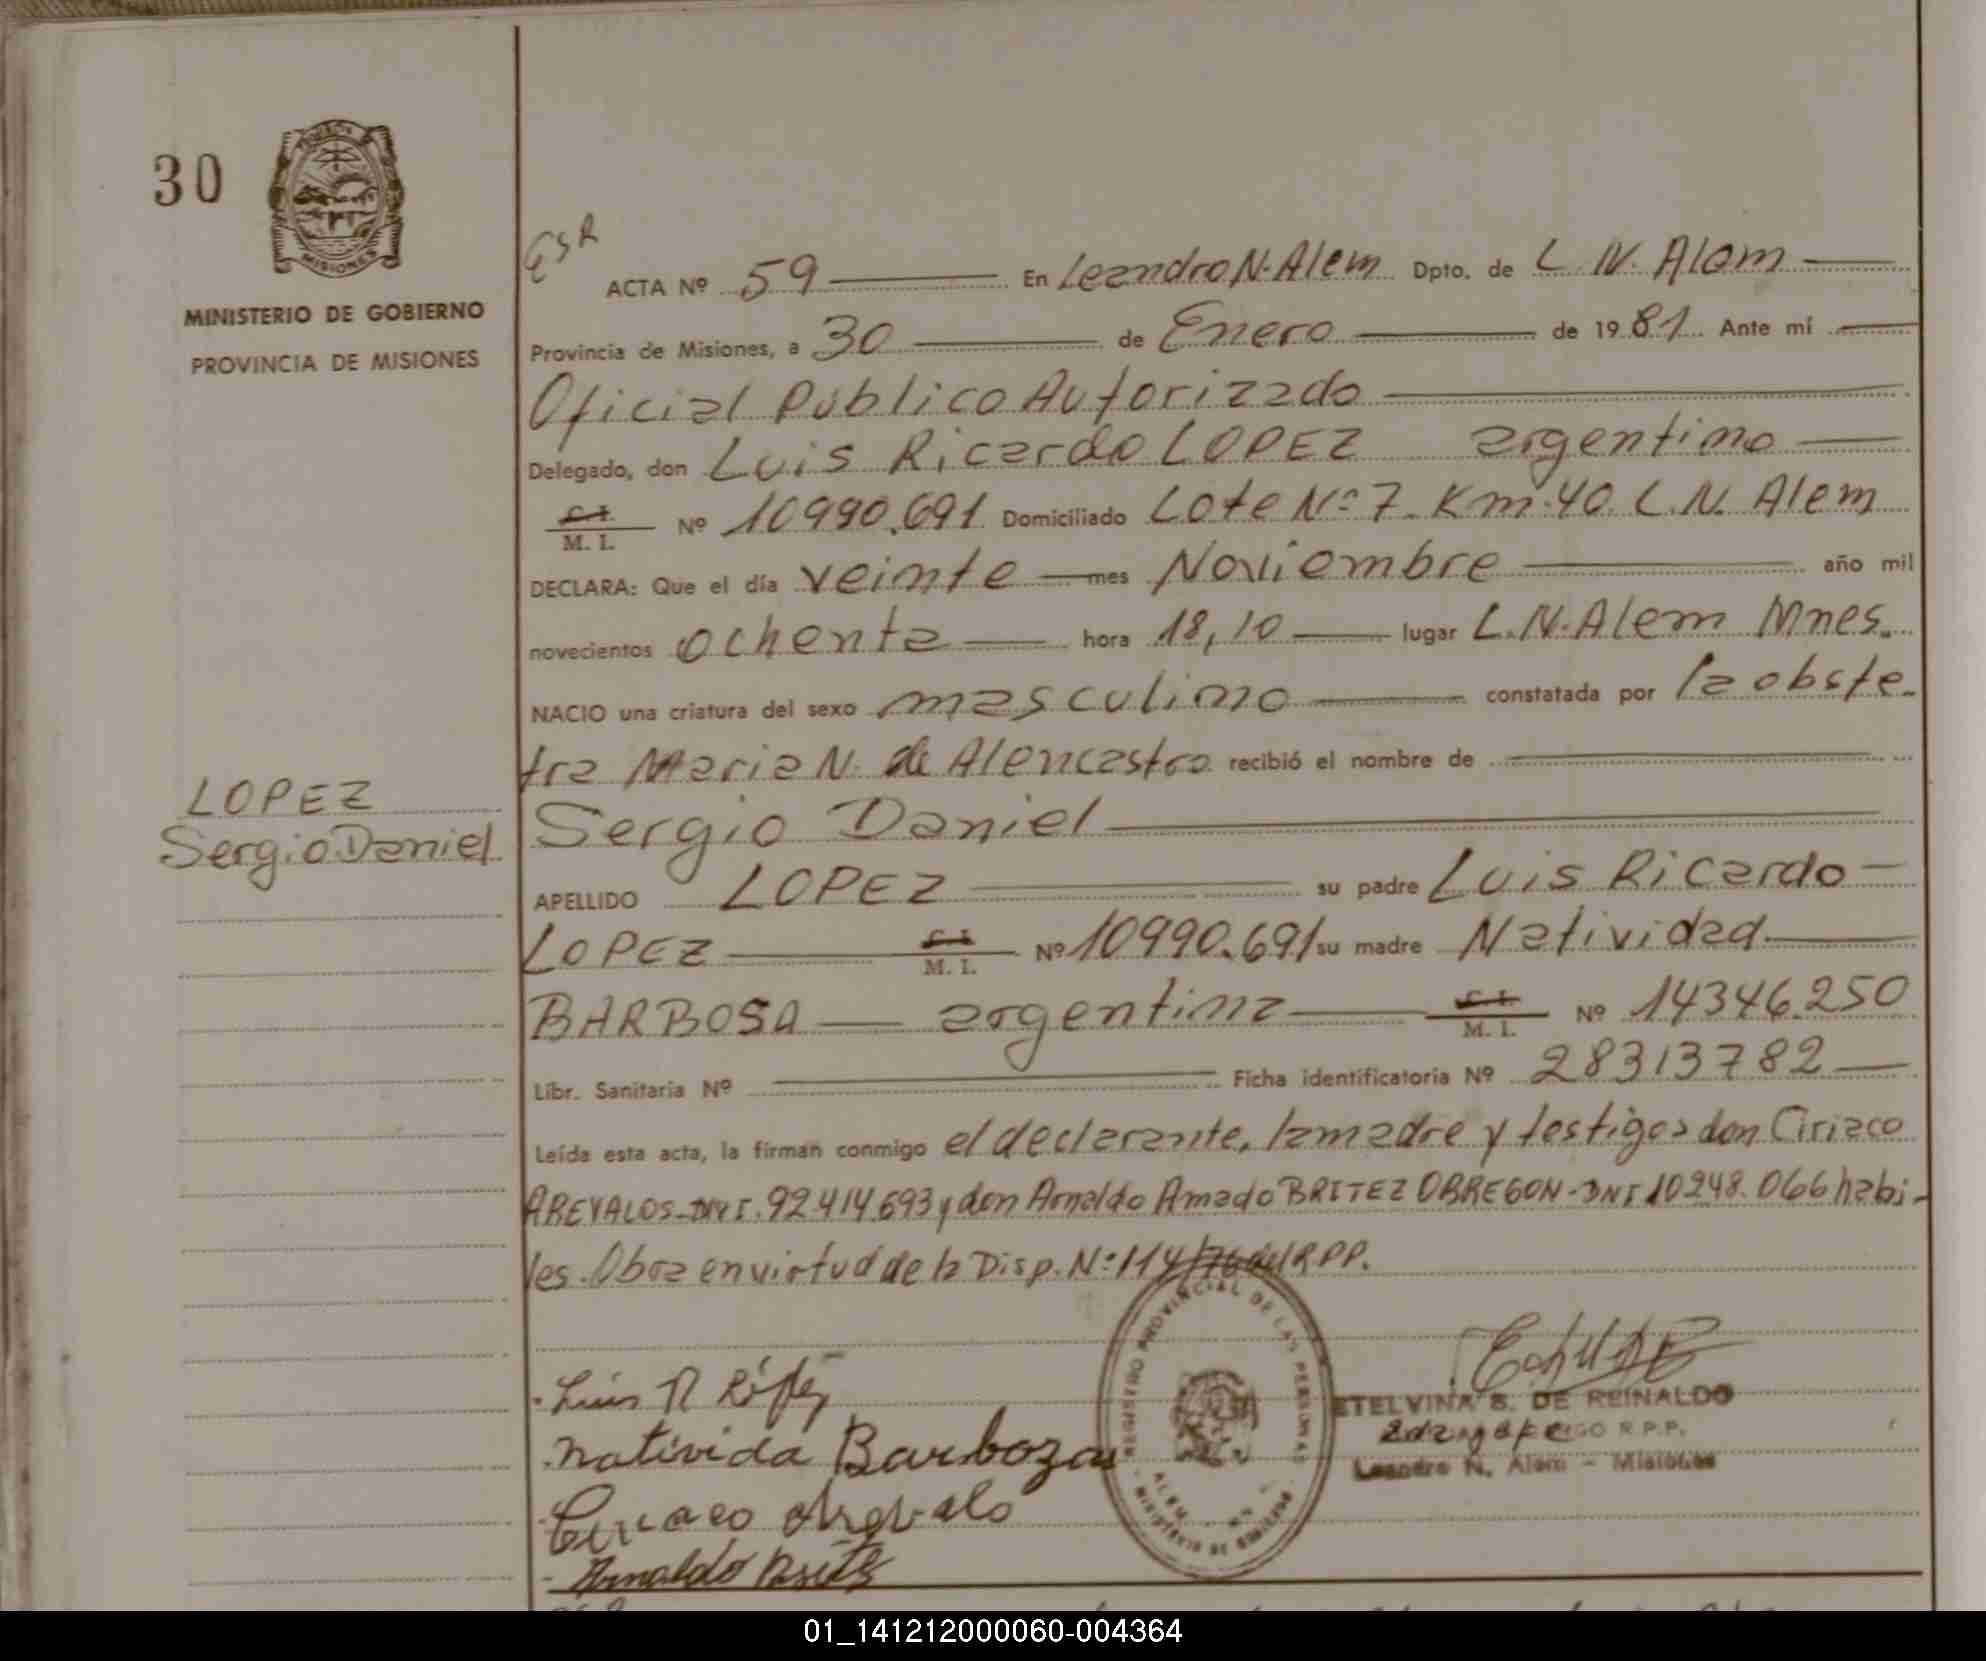 30
MISIONES
MINISTERIO DE GOBIERNO
PROVINCIA DE MISIONES
LOPEZ
Sergio Daniel
ESR
ACTA Nº 59 En Leandro N. Alem Dpto. de L. N. Alem
Provincia de Misiones, a 30 de Enero de 1981 Ante mí
Oficial Publico Autorizado
Delegado, don Luis Ricardo LOPEZ argentino
C. I. / M. I. Nº 10990.691 Domiciliado Lote Nº 7 Km. 40. L.N. Alem
DECLARA: Que el día veinte mes Noviembre año mil
novecientos ochenta hora 18,10 lugar L.N. Alem Mnes.
NACIO una criatura del sexo masculino constatada por la obste-
tra Maria N. de Alencastro recibió el nombre de
Sergio Daniel
APELLIDO LOPEZ su padre Luis Ricardo
LOPEZ C. I. / M. I. Nº 10990.691 su madre Natividad
BARBOSA argentina C. I. / M. I. Nº 14346.250
Libr. Sanitaria Nº Ficha identificatoria Nº 28313782
Leída esta acta, la firman conmigo el declarante, la madre y testigos don Ciriaco
AREVALOS-DNI. 92.414.693 y don Arnaldo Amado BRITEZ OBREGON-DNI 10248.066 habi-
les. Obra en virtud de la Disp. Nº 114/76 del R.P.P.
Luis R López
Nativida Barboza
Ciriaco Arevalo
Arnaldo Britez
REGISTRO PROVINCIAL DE LAS PERSONAS
ALEM
MINISTERIO DE GOBIERNO
ETELVINA S. DE REINALDO
R.P.P.
Leandro N. Alem - Misiones
01_141212000060-004364